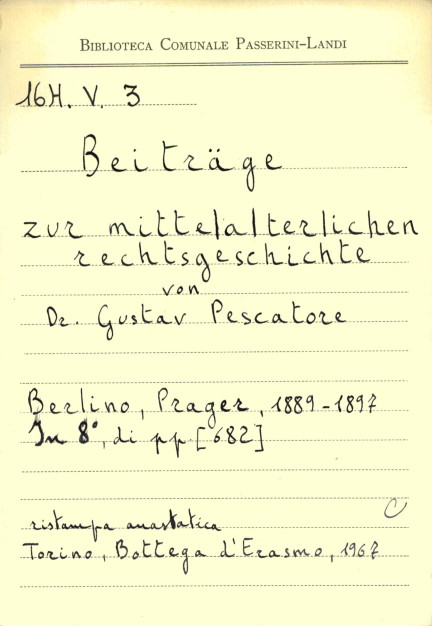 BIBLIOTECA COMUNALE PASSERINI-LANDI
16H. V. 3
Beiträge
zur mittelalterlichen
rechtsgeschichte
von
Dr. Gustav Pescatore
Berlino, Prager, 1889-1897
In 8°, di pp. [682]
C
ristampa anastatica
Torino, Bottega d'Erasmo, 1967